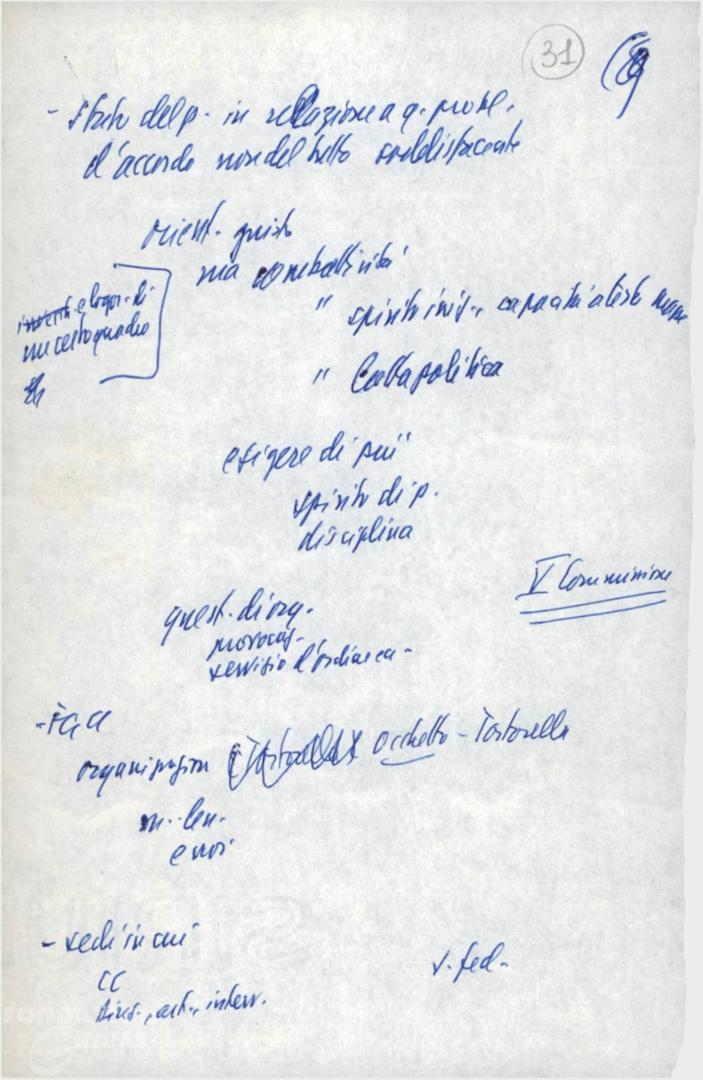 31
- stato del p. in relazione a q. probl.
d'accordo non del tutto soddisfacente
orient. giusto
ma combattività
" spirito iniz., capacità
" lotta politica
e logor. di
un certo quadro
esigere di più
spirito di p.
disciplina
V Commissione
quest. di org.
provocaz.
servizio d'ordine ca -
- FGCI
organizzazion Occhetto - Tortorella
e noi
- sedi in cui
CC
Direz., art., interv.
v. fed.